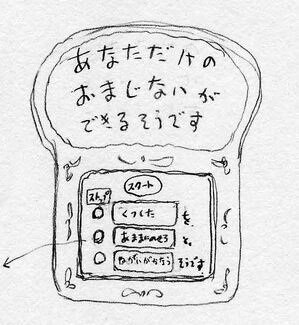 あなただけの
おまじないが
できるそうです
スタート
ストップ
くつした を、
あたまにのせる と、
ねがいがかなう そうです